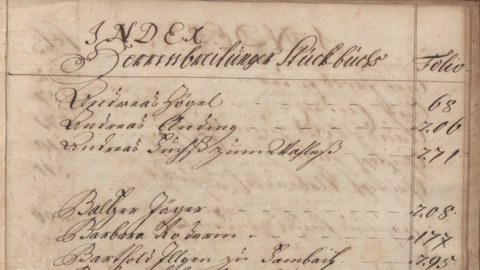 INDEX
Herrenbreitunger Stückbuchs
Folio
Andreas Högel 68
Andreas Anding 206
Andreas Fuchß zum 271
Baltzer Jäger 208
Barbara Röderin 177
Barthold Illgen zu Fambach 295